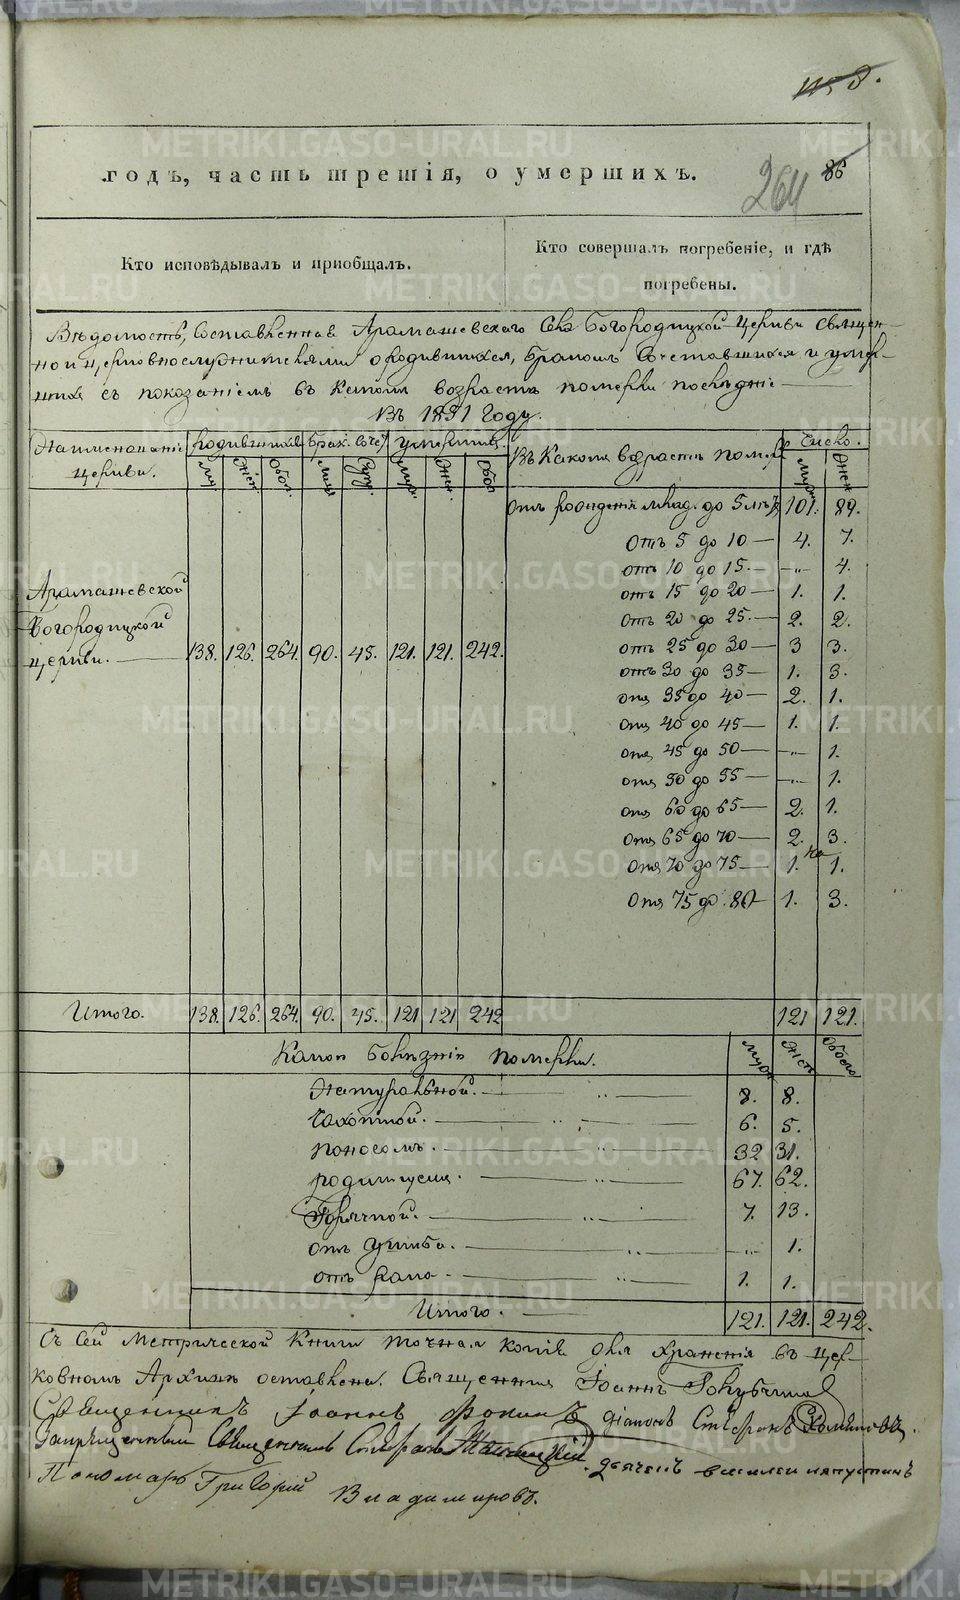 264
86
.годъ, часть третія, о умершихъ.
Кто исповѣдывалъ и пріобщалъ.
Кто совершалъ погребеніе, и гдѣ
погребены.
Вѣдомость, составленная Арамашевскаго Села Богородицкой Церкви Священ-
но и церковнослужителями о родившихся, браком сочетавшихся и умер-
шихъ съ показаніемъ въ какомъ возрастѣ померли послѣдніе
въ 1831 Году.
Наименованіе церкви. родившихся Брак. соче. умерших. Въ какомъ возрастѣ померли Число.
му. жен. обое. муж. суп. муж. жен. обое муж. жен.
отъ рожденія млад. до 5 лѣтъ 101. 89.
отъ 5 до 10 — 4. 7.
отъ 10 до 15. —„— 4.
отъ 15 до 20 — 1. 1.
отъ 20 до 25. — 2. 2.
отъ 25 до 30 — 3 3.
отъ 30 до 35 — 1. 3.
отъ 35 до 40 — 2. 1.
отъ 40 до 45 — 1. 1.
отъ 45 до 50 — —„— 1.
отъ 50 до 55 — —„— 1.
отъ 60 до 65 — 2. 1.
отъ 65 до 70 — 2. 3.
отъ 70 до 75 — 1. 1.
отъ 75 до 80 — 1. 3.
Арамашевской
Богородицкой
церкви. — 138. 126. 264. 90. 45. 121. 121. 242.
Итого. 138. 126. 264. 90. 45. 121 121 242 121 121.
Какою болѣзнію померли. муж. жен. обоего
Натуральной. 8. 8.
Чахоткой. 6. 5.
поносомъ. 32 31.
родимцемъ. 67. 62.
Горячкой. 7. 13.
отъ ушиба. —„— 1.
отъ рака. 1. 1.
Итого. 121. 121. 242.
Съ сей Метрической Книги точная копія для храненія въ цер-
ковномъ Архивѣ оставлена. Священникъ Іоаннъ
Священникъ Іоаннъ Фокинъ діаконъ Стефанъ
Запрещенный Священникъ Стефанъ
дьячекъ василей капустинъ
Пономарь Григорій Владимировъ.
METRIKI.GASO-URAL.RU